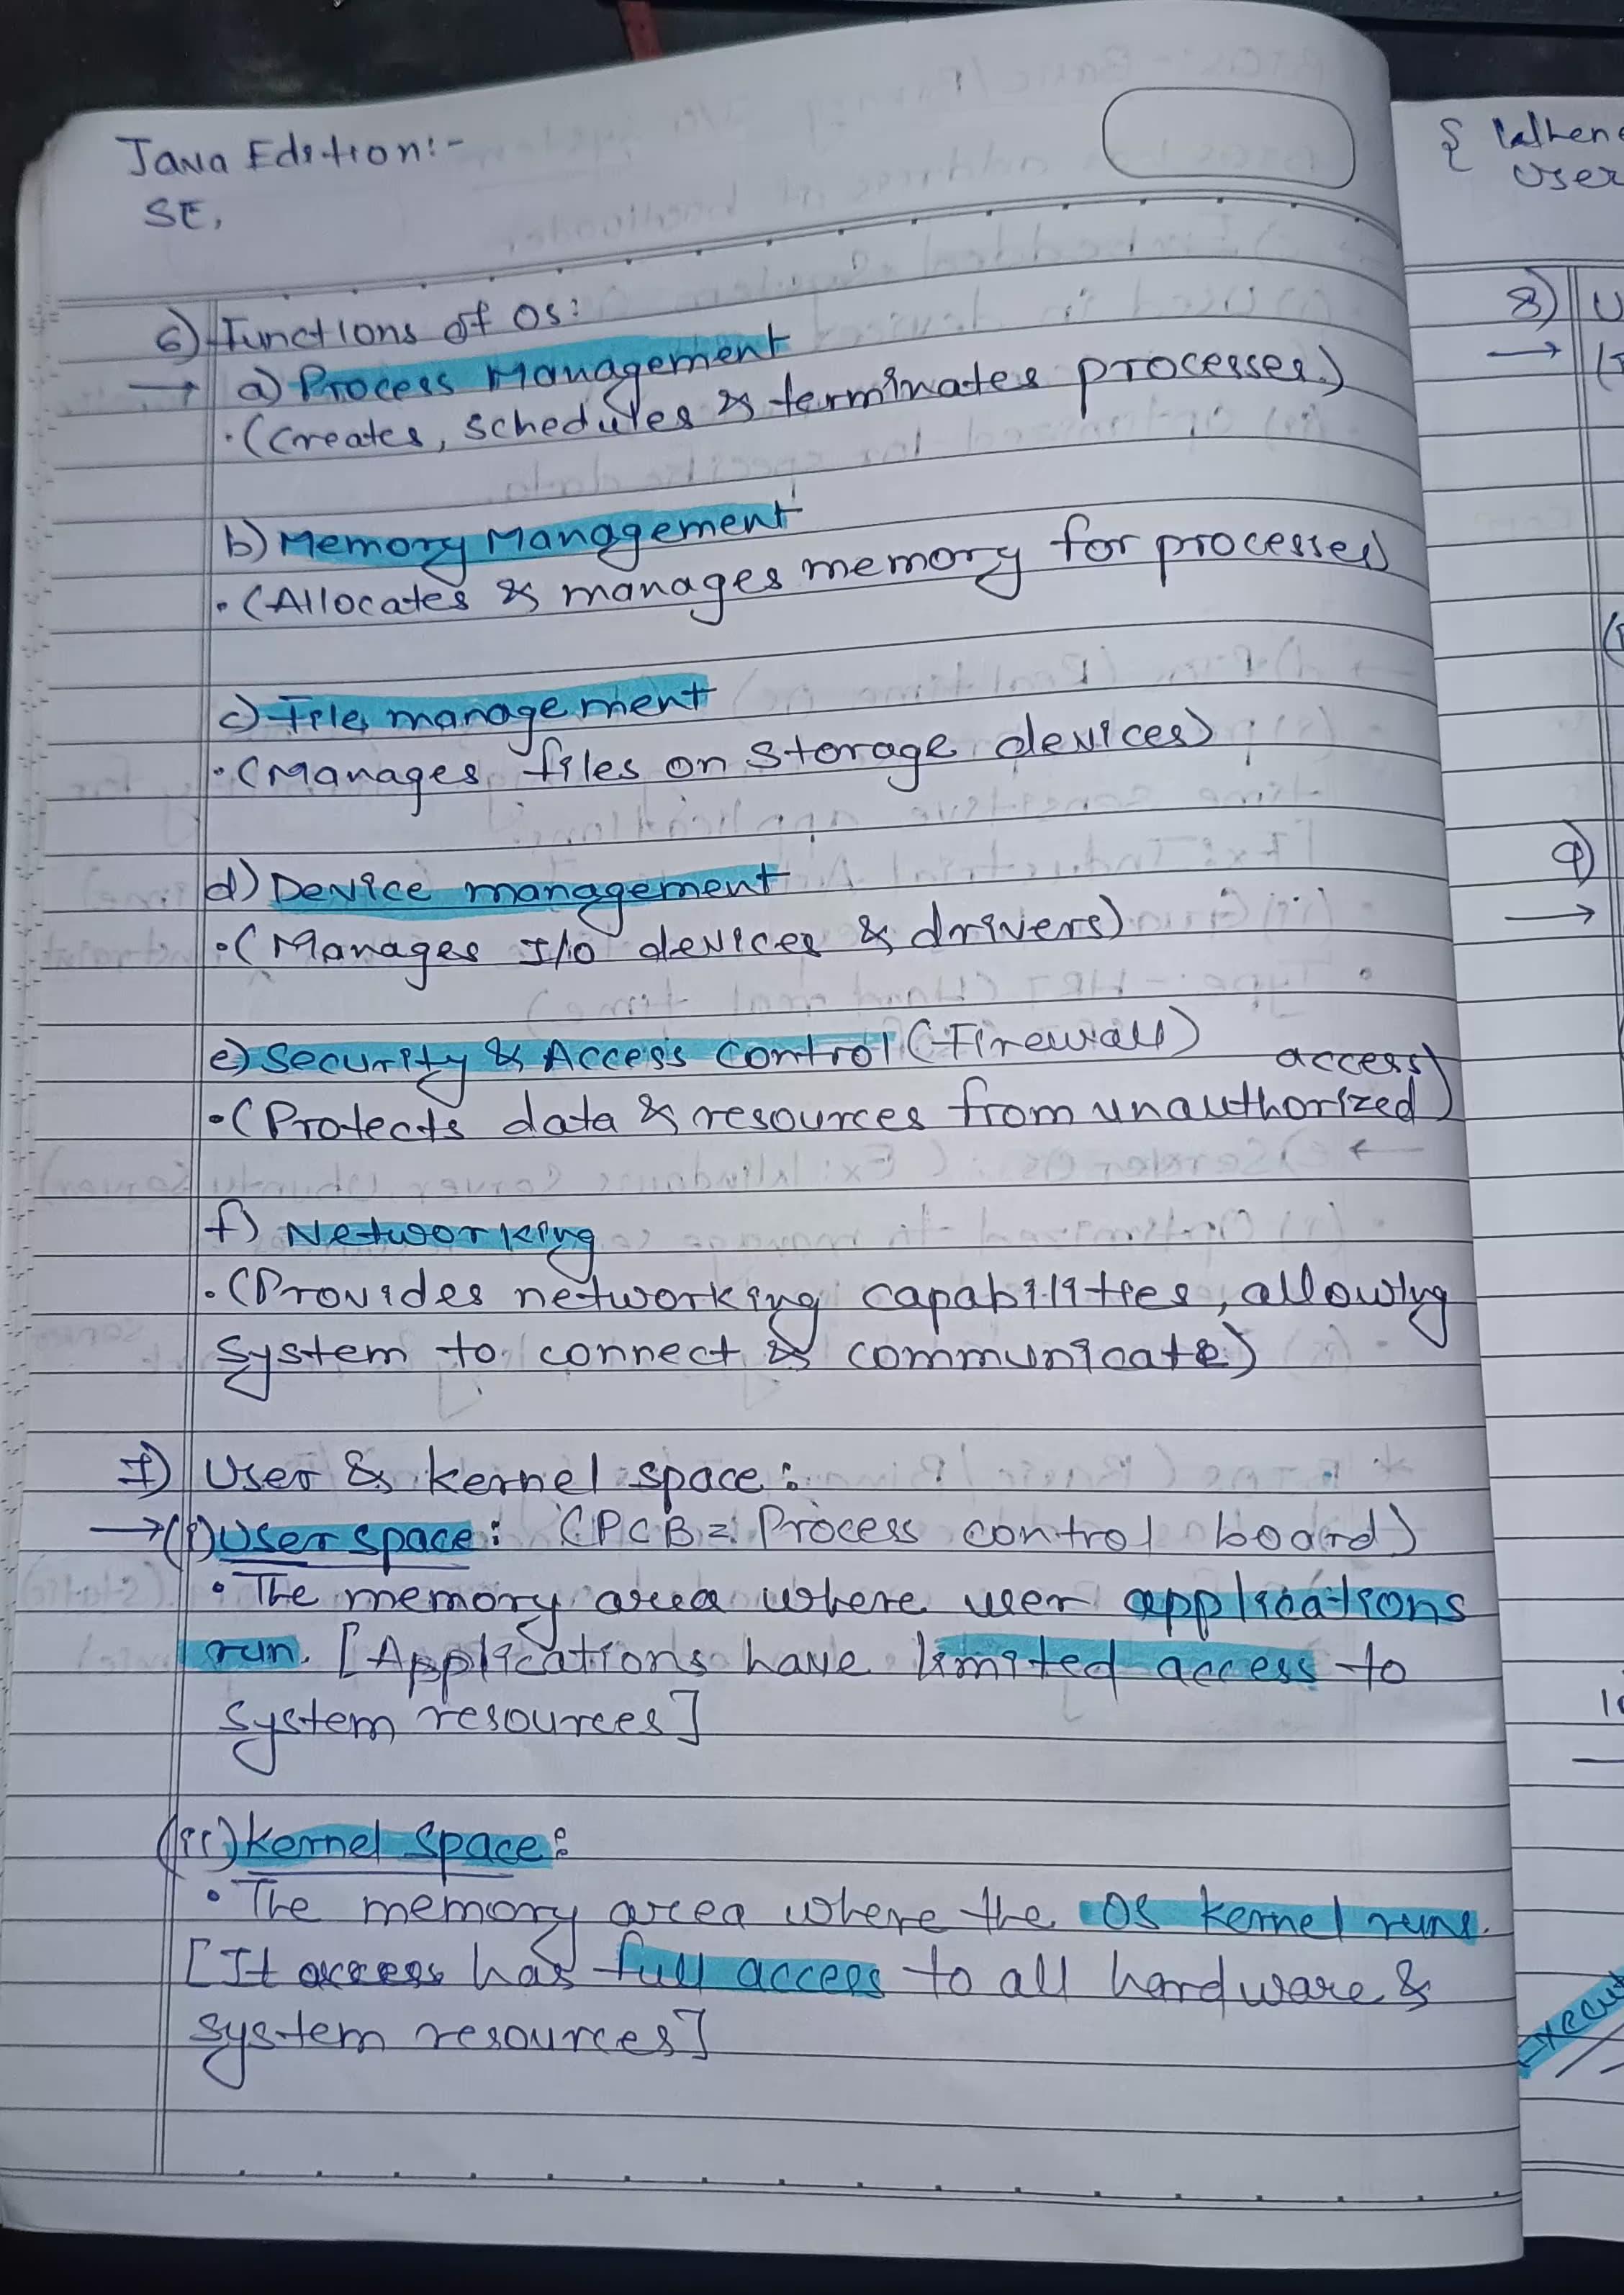 Java Edition:-
SE,
6) Functions of OS:
→ a) Process Management
·(Creates, schedules & terminates processes)
b) Memory Management
·(Allocates & manages memory for processes)
c) File management
·(Manages files on storage devices)
d) Device management
·(Manages I/O devices & drivers)
e) Security & Access control (Firewall)
access)
·(Protects data & resources from unauthorized
f) Networking
·(Provides networking capabilities, allowing
system to connect & communicate)
7) User & kernel space:
→(i) User space: (PCB = Process control board)
· The memory area where user applications
run. [Applications have limited access to
system resources]
(ii) Kernel space:
· The memory area where the OS kernel runs.
[It access has full access to all hardware &
system resources]
{
User
8)
→
9)
→